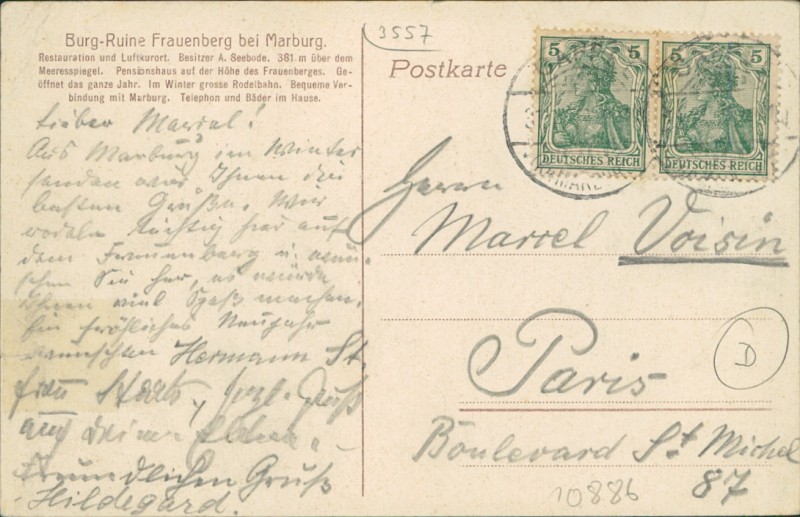 Burg-Ruine Frauenberg bei Marburg.
Restauration und Luftkurort. Besitzer A. Seebode. 381 m über dem
Meeresspiegel. Pensionshaus auf der Höhe des Frauenberges. Ge-
öffnet das ganze Jahr. Im Winter grosse Rodelbahn. Bequeme Ver-
bindung mit Marburg. Telephon und Bäder im Hause.
3557
Postkarte
5 5
DEUTSCHES REICH
5 5
DEUTSCHES REICH
Lieber Marcel!
Aus Marburg im Winter
senden wir Ihnen die
besten Grüße. Wir
rodeln tüchtig hier auf
dem Frauenberg u. wün-
schen Sie her, es würde
Ihnen viel Spaß machen.
Ein fröhliches Neujahr
wünschen Hermann St
Frau Gruß
auch Deinen Eltern
Freundlichen Gruß
Hildegard.
Herrn
Marcel Voisin
Paris
Boulevard St Michel
87
D
10886